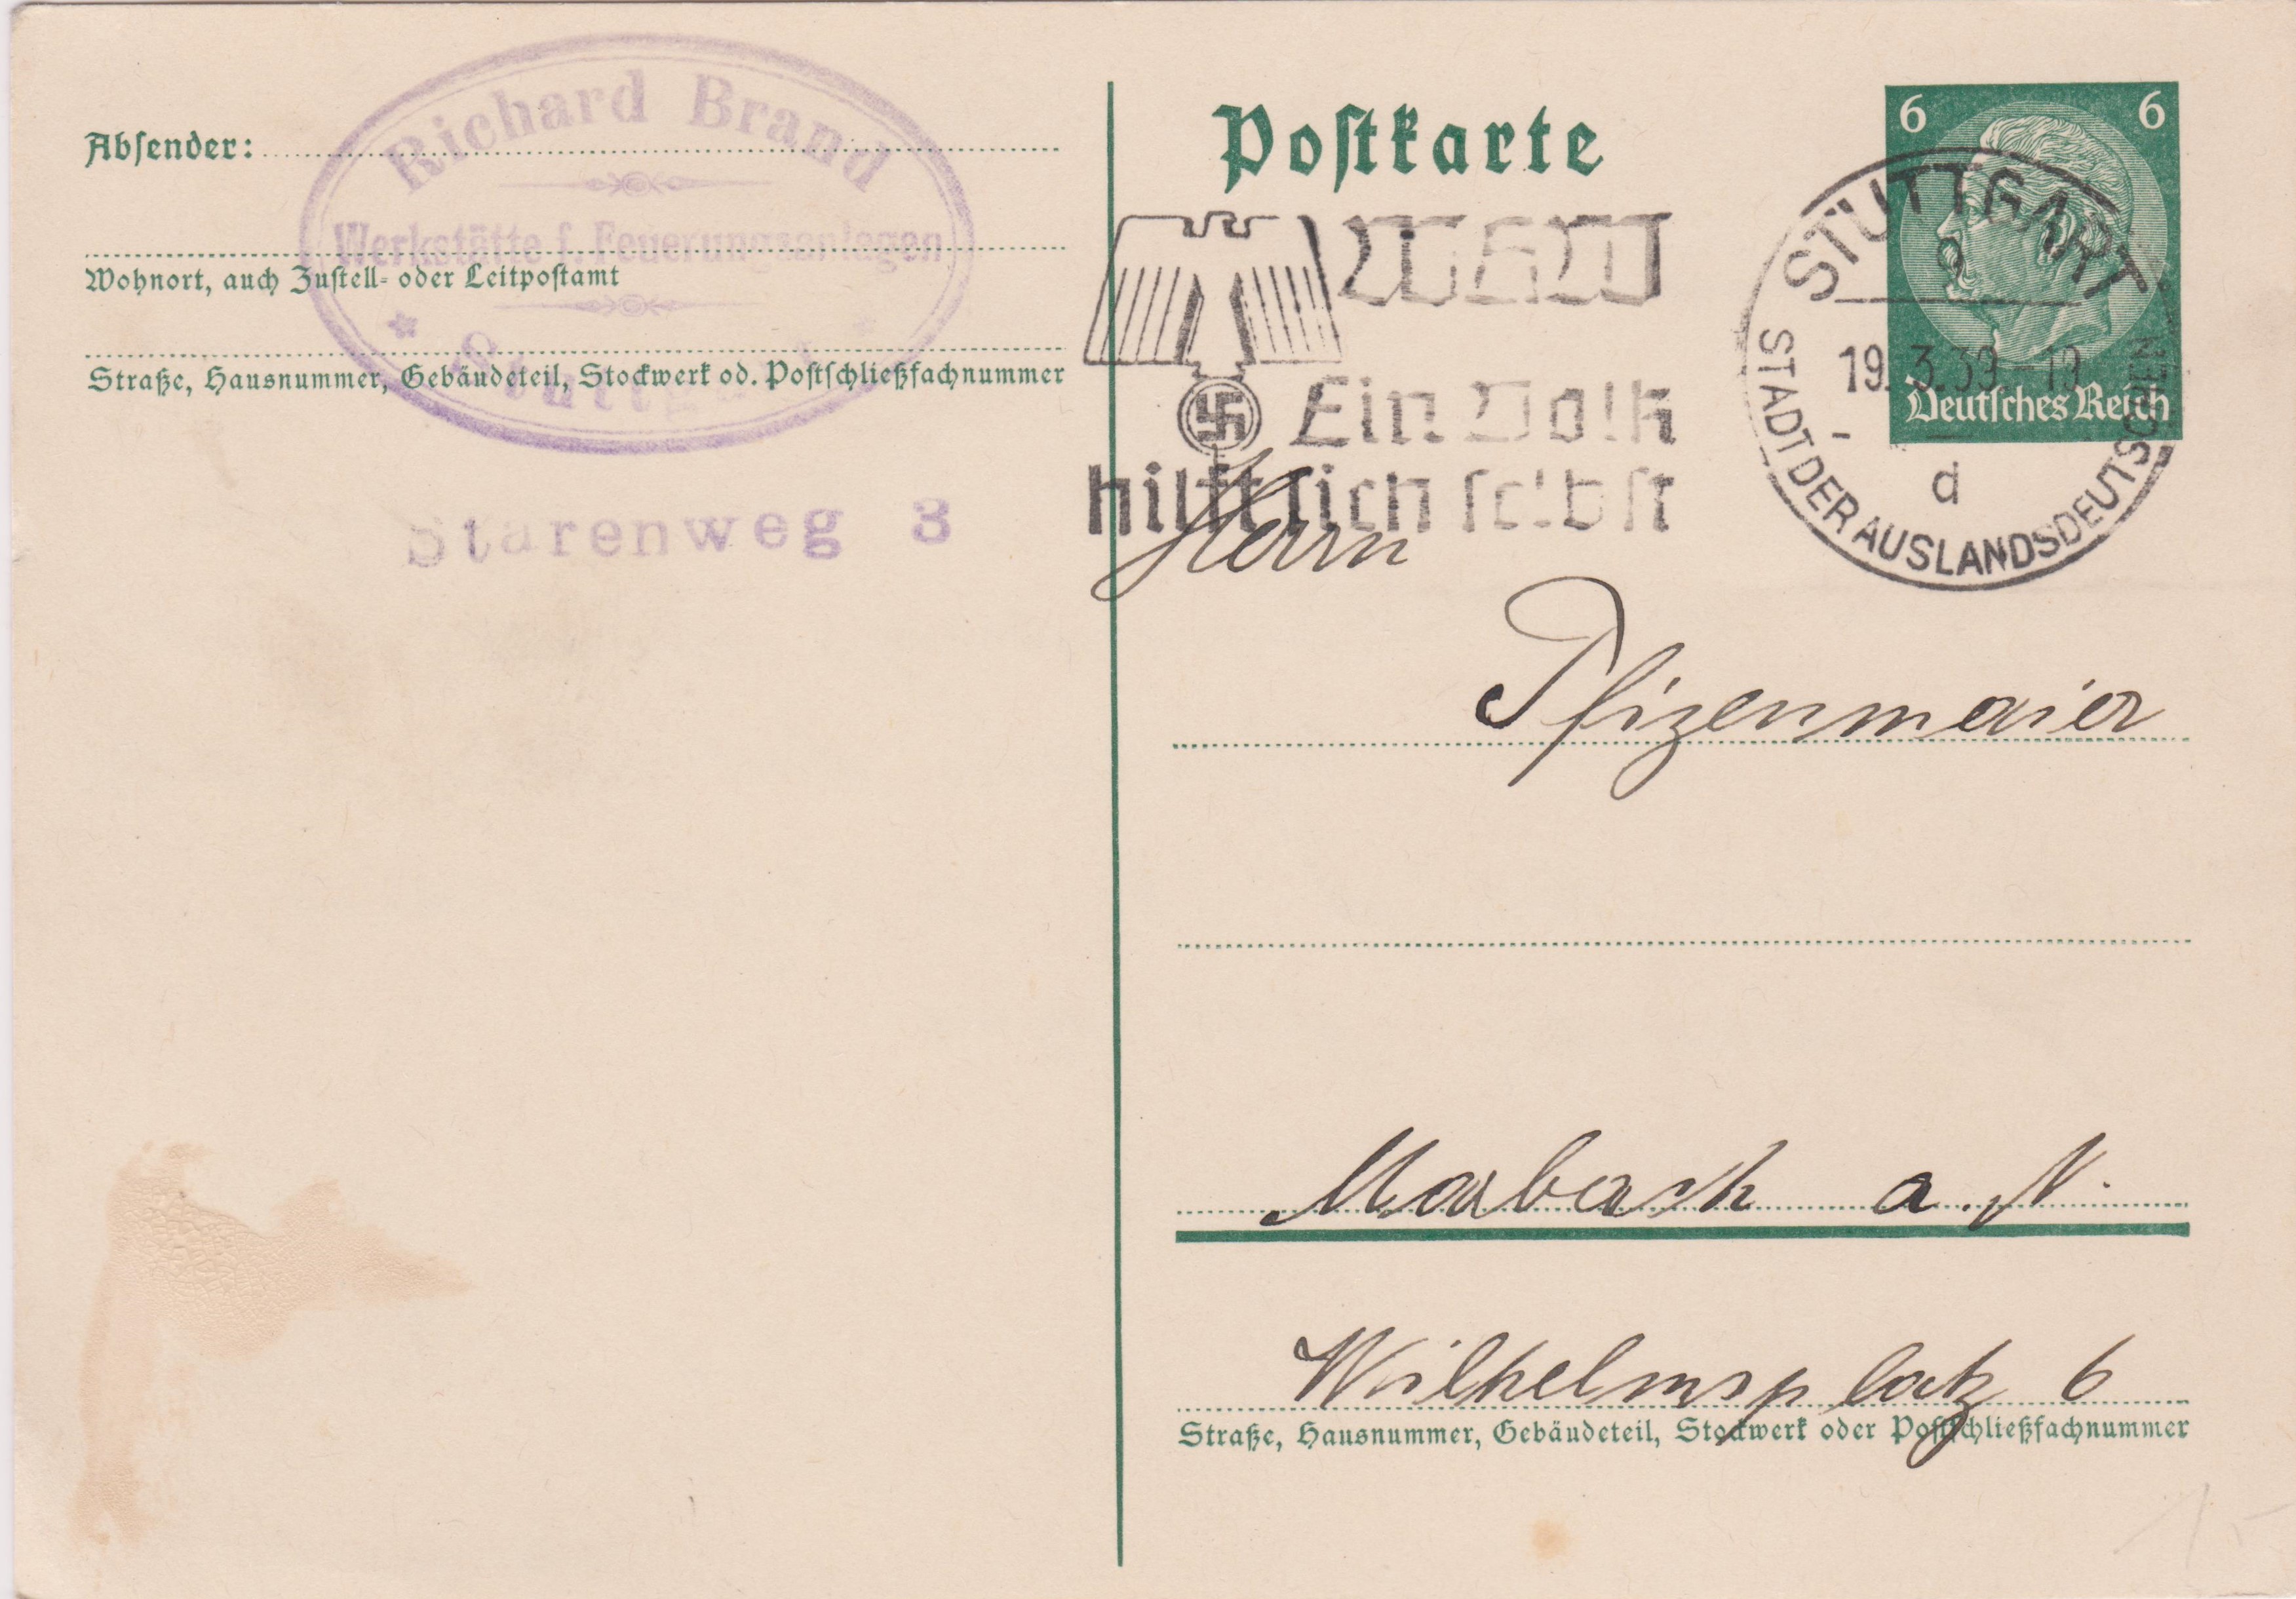 Richard Brand
Werkstätte f. Feuerungsanlagen
Stuttgart
Starenweg 3
Absender:
Wohnort, auch Zustell- oder Leitpostamt
Straße, Hausnummer, Gebäudeteil, Stockwerk od. Postschließfachnummer
Postkarte
WHW
Ein Volk
hilft sich selbst
6 6
Deutsches Reich
STUTTGART
9
19.3.39.-19
d
STADT DER AUSLANDSDEUTSCHEN
Herrn
Pfizenmaier
Marbach a. N.
Wilhelmsplatz 6
Straße, Hausnummer, Gebäudeteil, Stockwerk oder Postschließfachnummer